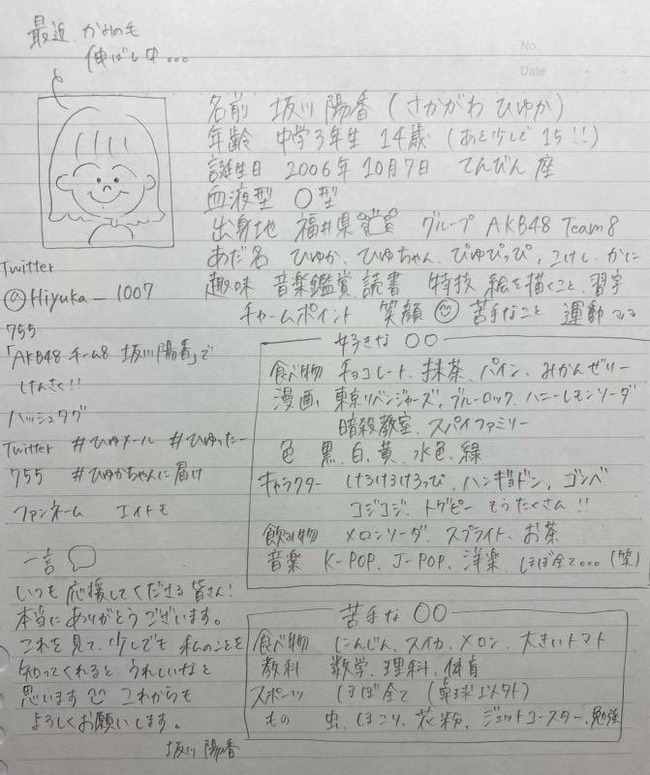 最近 かみのも
伸ばし中...
No.
Date
名前 坂川 陽香 (さかがわ ひゆか)
年齢 中学3年生 14歳 (あと少しで 15!!)
誕生日 2006年 10月7日 てんびん座
血液型 O型
出身地 福井県 グループ AKB48 Team8
あだ名 ひゆか、ひゆちゃん、ぴゆぴっぴ、こけし、かに
趣味 音楽鑑賞、読書 特技 絵を描くこと、習字
チャームポイント 笑顔 苦手なこと 運動
Twitter
@Hiyuka_1007
755
「AKB48 チーム8 坂川陽香」で
けんさく!!
ハッシュタグ
Twitter #ひゆメール #ひゆったー
755 #ひゆかちゃんに届け
ファンネーム エイトモ
一言
いつも応援してくださる皆さん!
本当にありがとうございます。
これを見て、少しでも 私のことを
知ってくれると うれしいなと
思います これからも
よろしくお願いします。
坂川 陽香
好きな 〇〇
食べ物 チョコレート、抹茶、パイン、みかんゼリー
漫画 東京リベンジャーズ、ブルーロック、ハニーレモンソーダ
暗殺教室、スパイファミリー
色 黒、白、黄、水色、緑
キャラクター けろけろけろっぴ、ハンギョドン、ゴンベ
コジコジ、トゲピー もうたくさん!!
飲み物 メロンソーダ、スプライト、お茶
音楽 K-POP、J-POP、洋楽、ほぼ全て... (笑)
苦手な 〇〇
食べ物 にんじん、スイカ、メロン、大きいトマト
教科 数学、理科、体育
スポーツ ほぼ全て (卓球以外)
もの 虫、ほこり、花粉、ジェットコースター、勉強